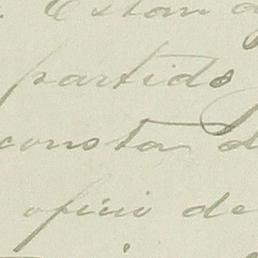 Estan
partido
consta d
ofici de